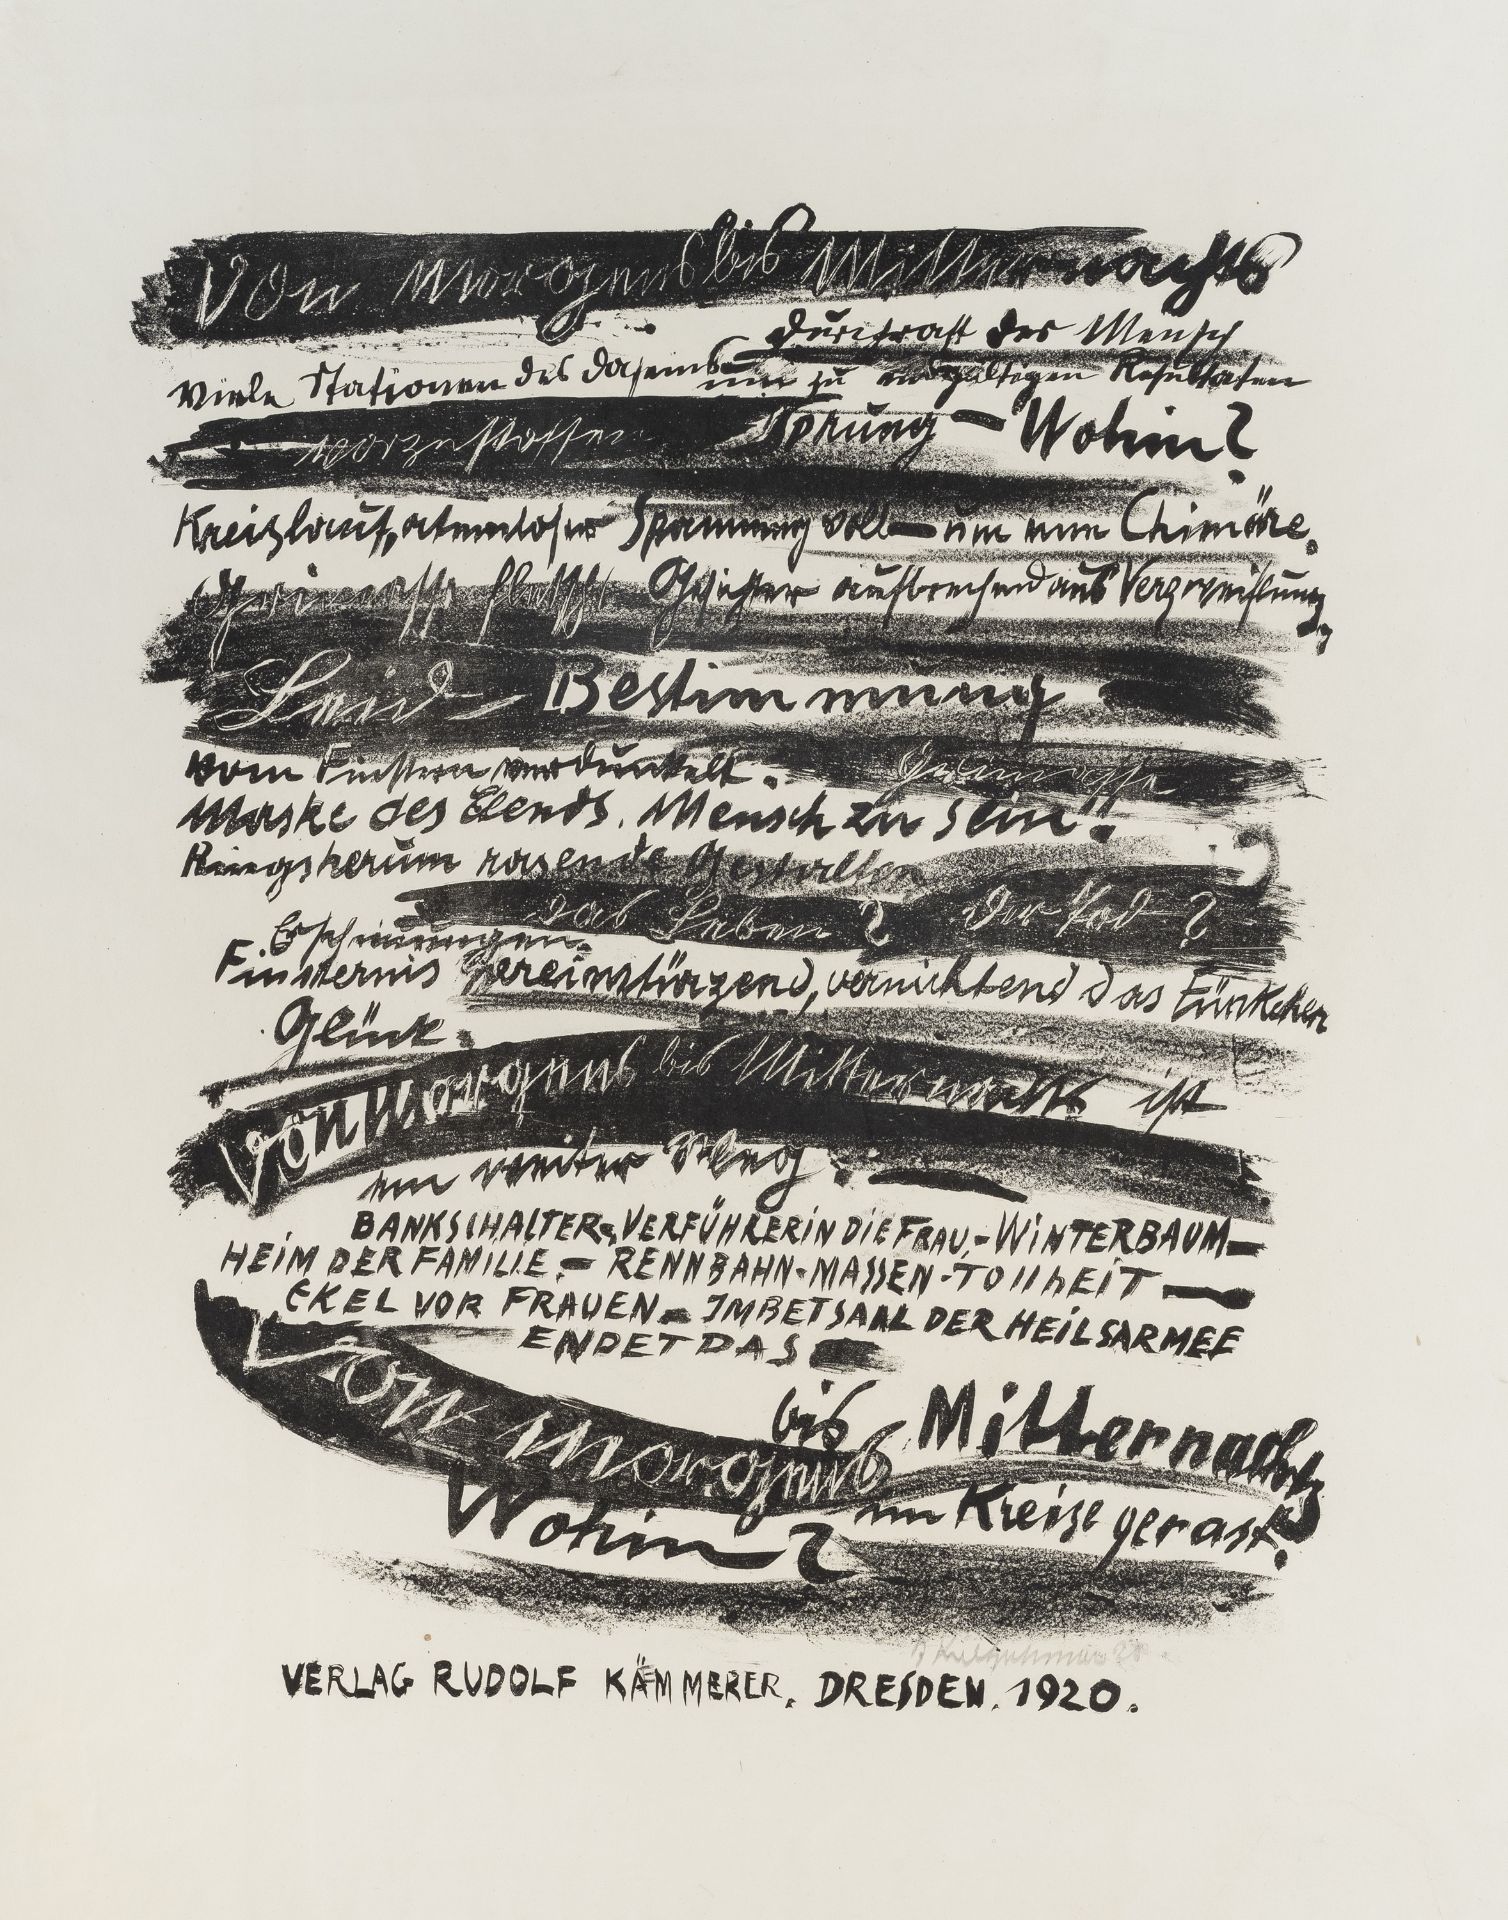 Von morgens bis Mitternachts
durchrast der Mensch
viele Stationen des Daseins um zu endgültigen Resultaten
vorzustossen Sprung – Wohin?
Kreislauf, atemloser Spannung voll – um eine Chimäre.
Grimasse fletscht Gesichter aufbrechend aus Verzweiflung,
Leid – Bestimmung
vom Finstern verdunkelt. Grimasse
Maske des Elends. Mensch zu sein!!
Ringsherum rasende Gestalten
das Leben? der Tod?
Erscheinungen.
Finsternis hereinstürzend, vernichtend das Fünkchen
Glück.
Von morgens bis Mitternachts ist
ein weiter Weg: —
BANKSCHALTER, VERFÜHRERIN DIE FRAU, – WINTERBAUM –
HEIM DER FAMILIE, – RENNBAHN - MASSEN - TOLLHEIT —
EKEL VOR FRAUEN – IM BETSAAL DER HEILSARMEE
ENDET DAS
Von morgens bis Mitternachts
im Kreise gerast.
Wohin?
VERLAG RUDOLF KÄMMERER. DRESDEN. 1920.